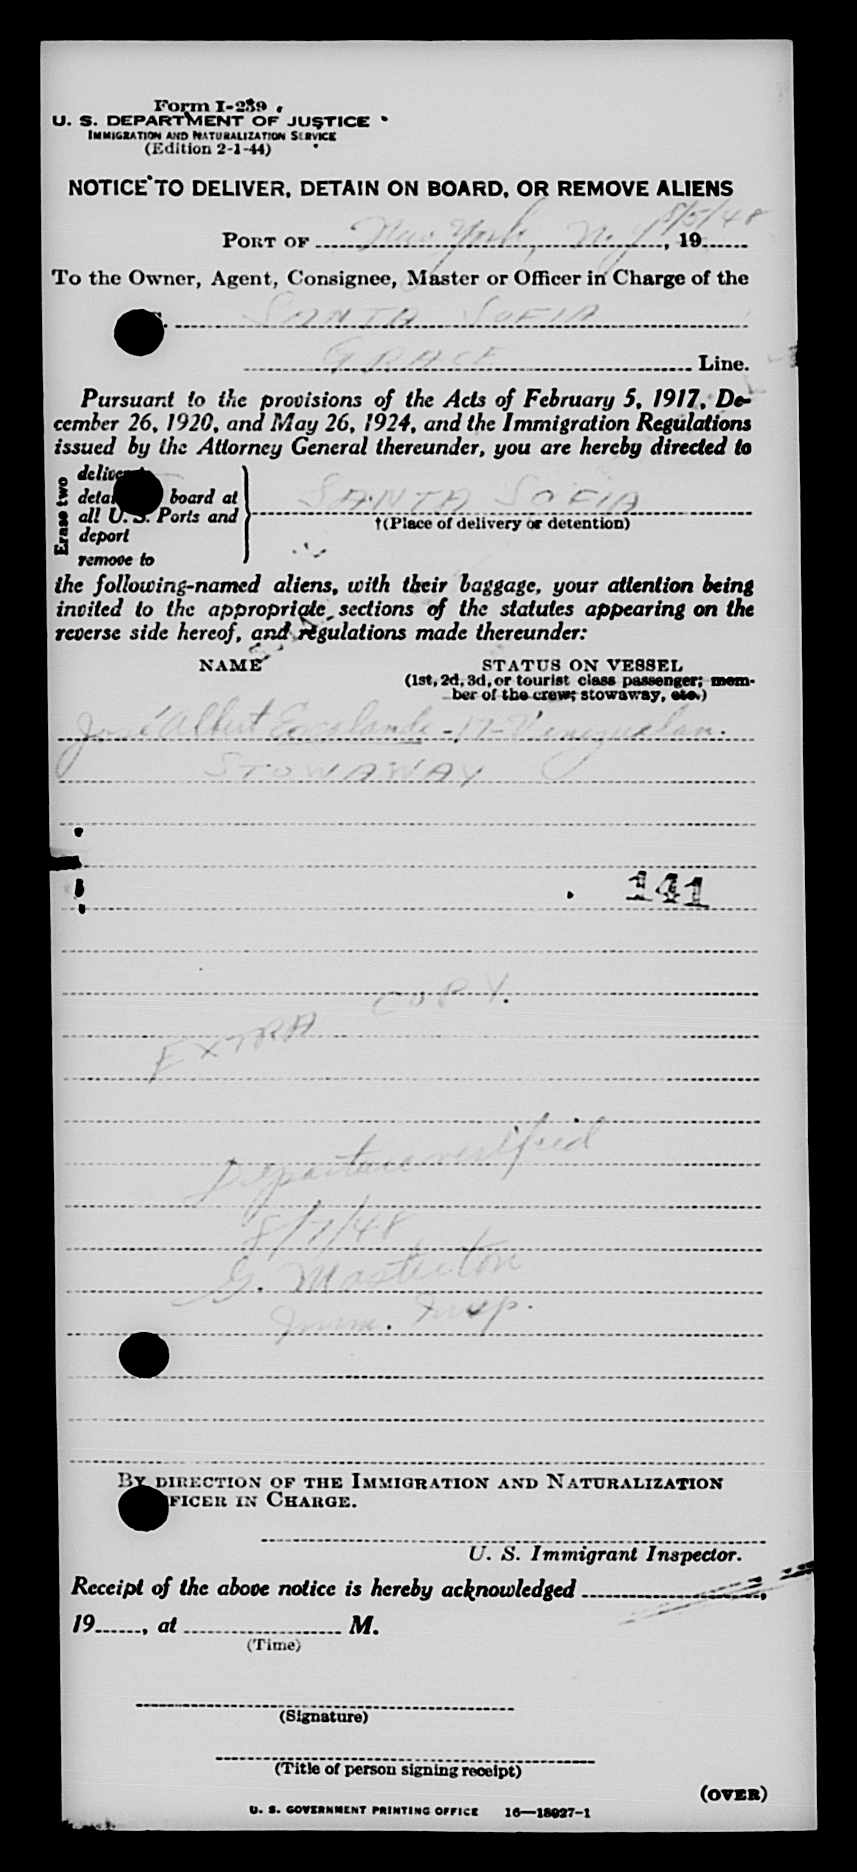 Form I-259
U. S. DEPARTMENT OF JUSTICE
IMMIGRATION AND NATURALIZATION SERVICE
(Edition 2-1-44)
NOTICE TO DELIVER, DETAIN ON BOARD, OR REMOVE ALIENS
PORT OF New York, N.Y. 8/5/48, 19
To the Owner, Agent, Consignee, Master or Officer in Charge of the
SANTA SOFIA
GRACE Line.
Pursuant to the provisions of the Acts of February 5, 1917, De-
cember 26, 1920, and May 26, 1924, and the Immigration Regulations
issued by the Attorney General thereunder, you are hereby directed to
Erase two
board at
all U. S. Ports and
deport
remove to
SANTA SOFIA
†(Place of delivery or detention)
the following-named aliens, with their baggage, your attention being
invited to the appropriate sections of the statutes appearing on the
reverse side hereof, and regulations made thereunder:
NAME STATUS ON VESSEL
(1st, 2d, 3d, or tourist class passenger; mem-
ber of the crew; stowaway, etc.)
José Albert - 17 - Venezuelan.
STOWAWAY
141
EXTRA COPY.
Departure verified
8/7/48
G. Masterton
Imm. Insp.
BY DIRECTION OF THE IMMIGRATION AND NATURALIZATION
IN CHARGE.
U. S. Immigrant Inspector.
Receipt of the above notice is hereby acknowledged ,
19 , at M.
(Time)
(Signature)
(Title of person signing receipt)
(OVER)
U. S. GOVERNMENT PRINTING OFFICE 16—18027-1